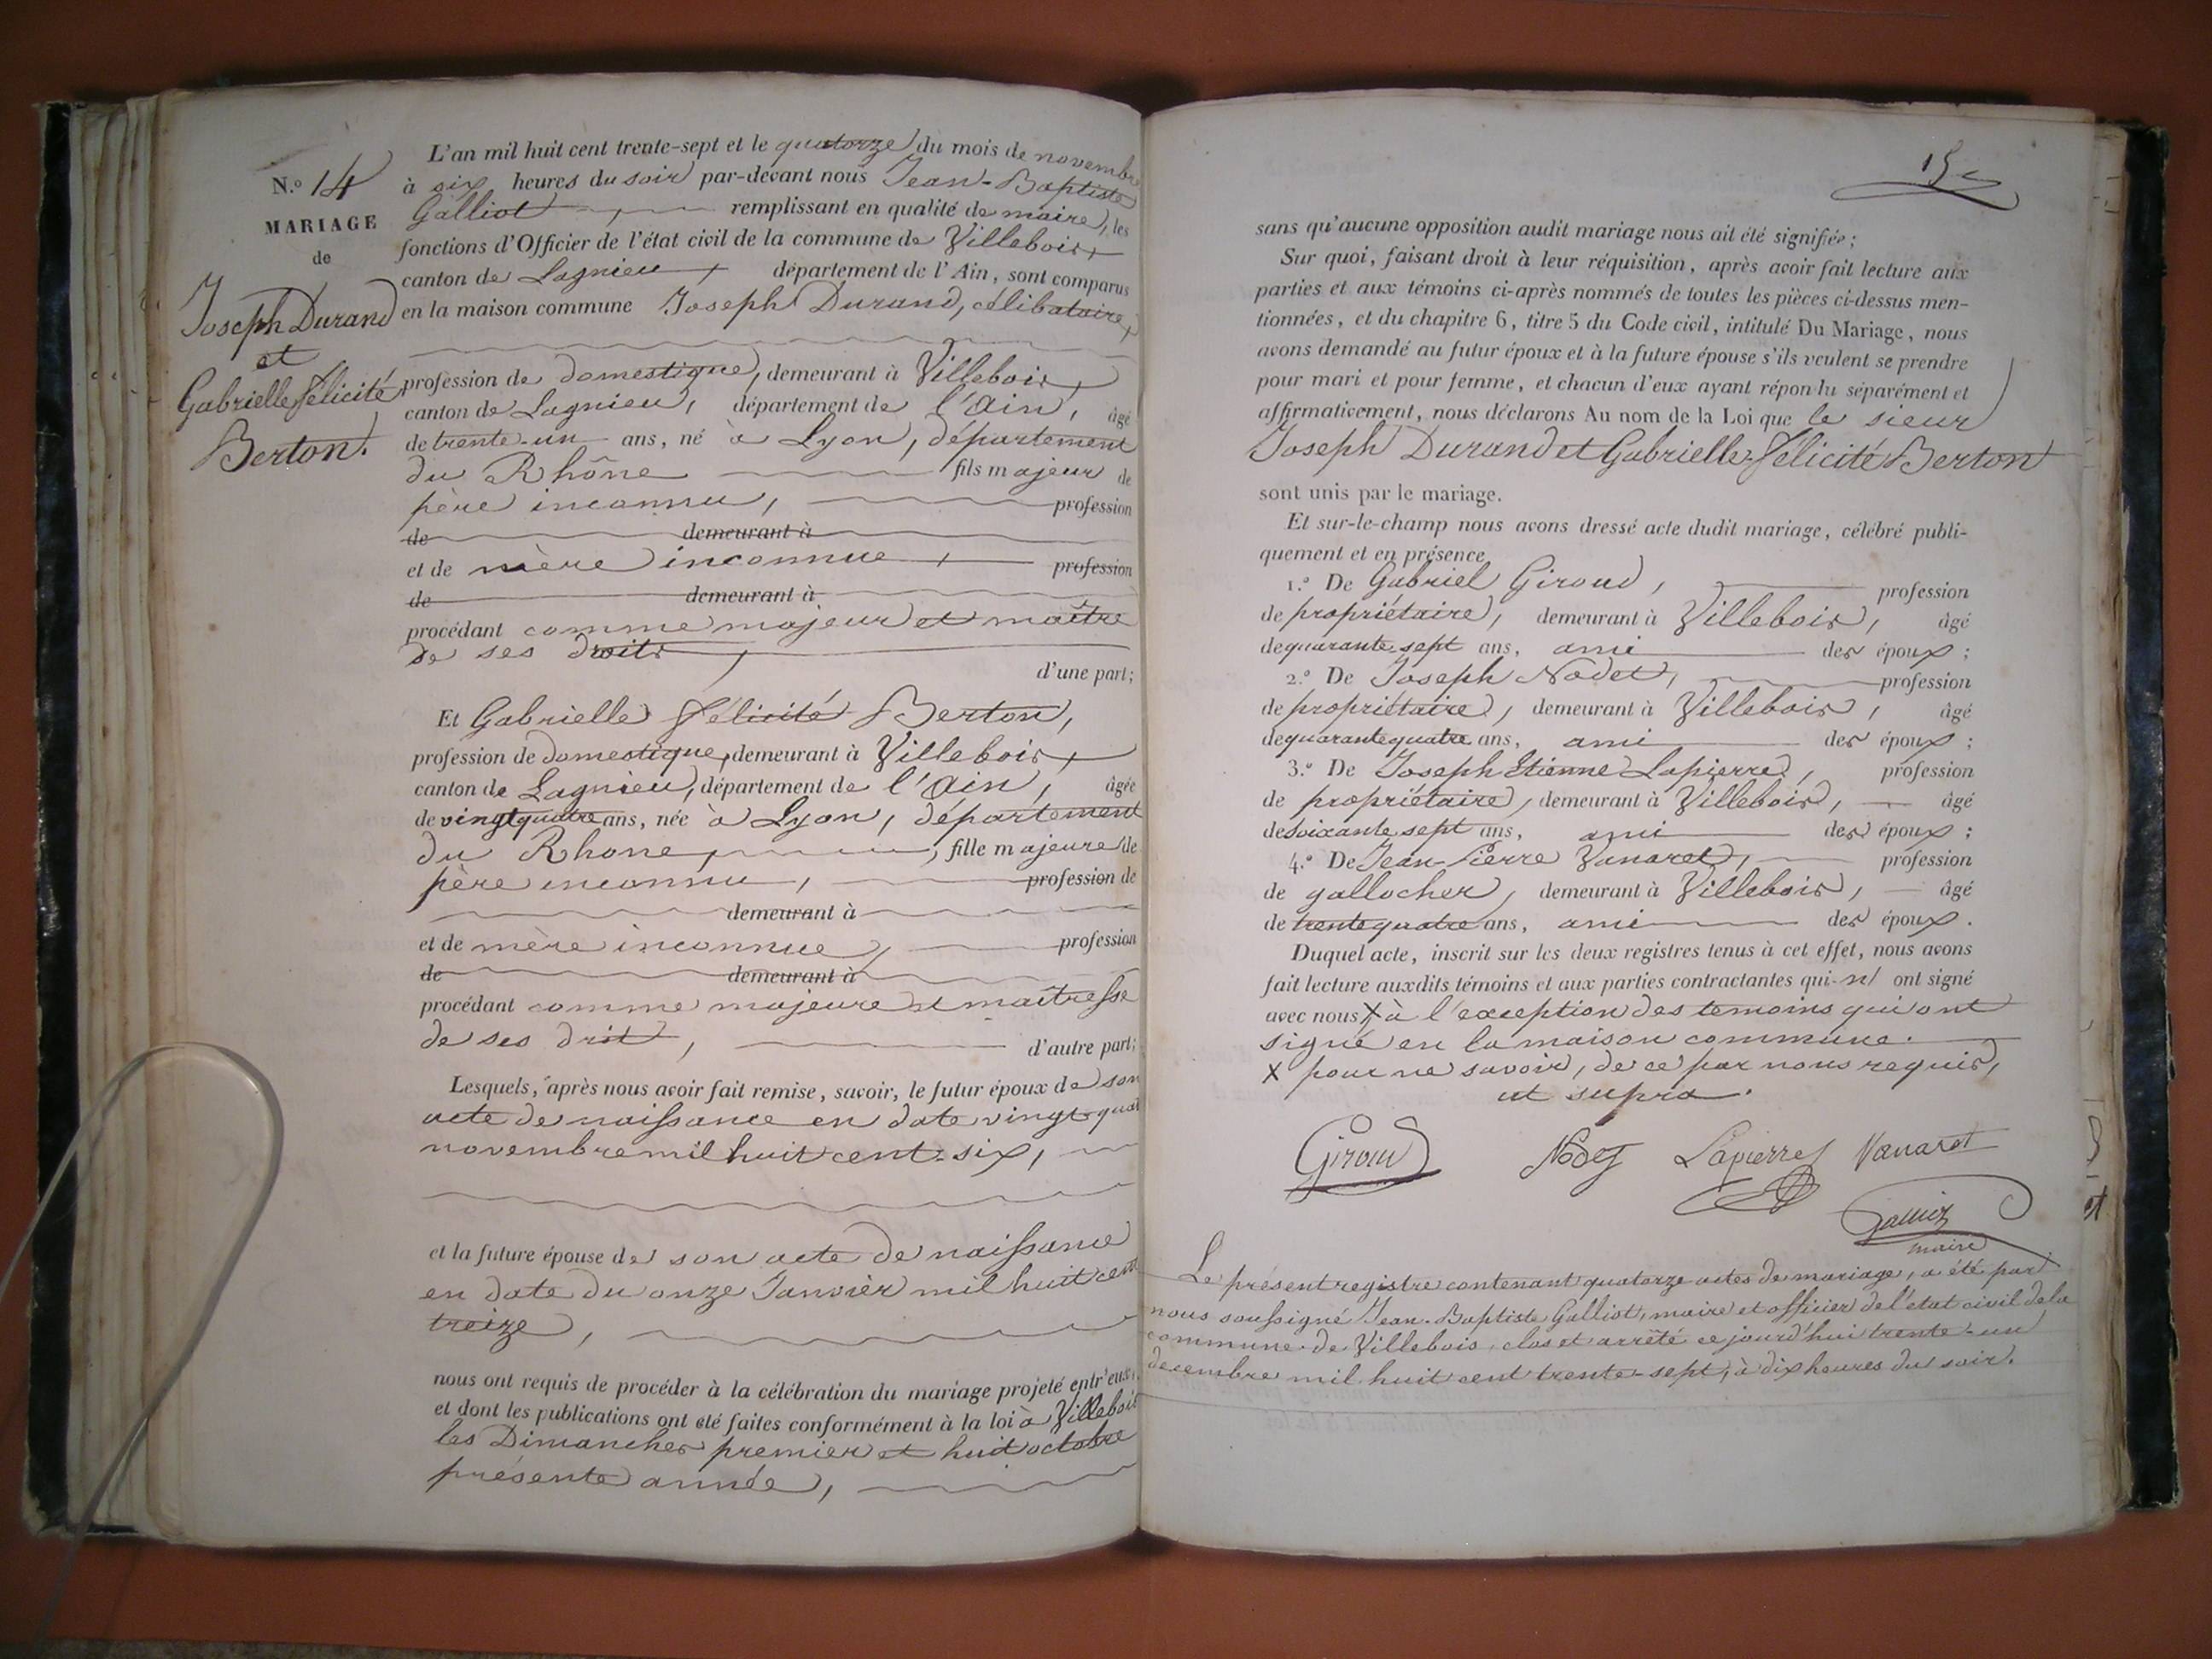 N.º 14
MARIAGE
de
Joseph Durand
et
Gabrielle félicité
Berton.
L'an mil huit cent trente-sept et le quatorze du mois de novembre
à six heures du soir par-devant nous Jean-Baptiste
Galliot remplissant en qualité de maire, les
fonctions d'Officier de l'état civil de la commune de Villebois,
canton de Lagnieu, département de l'Ain, sont comparus
en la maison commune Joseph Durand, célibataire,
profession de domestique, demeurant à Villebois,
canton de Lagnieu, département de l'Ain, âgé
de trente-un ans, né à Lyon, département
du Rhône fils majeur de
père inconnu, profession
de demeurant à
et de mère inconnue, profession
de demeurant à
procédant comme majeur et maître
de ses droits,
d'une part;
Et Gabrielle félicité Berton,
profession de domestique, demeurant à Villebois,
canton de Lagnieu, département de l'Ain, âgée
de vingt quatre ans, née à Lyon, département
du Rhone, fille majeure de
père inconnu, profession de
demeurant à
et de mère inconnue, profession
de demeurant à
procédant comme majeure et maîtresse
de ses droit, d'autre part;
Lesquels, après nous avoir fait remise, savoir, le futur époux de son
acte de naissance en date vingt-quat
novembre mil huit cent-six,
et la future épouse de son acte de naissance
en date du onze Janvier mil huit cent
treize,
nous ont requis de procéder à la célébration du mariage projeté entr'eux,
et dont les publications ont été faites conformément à la loi à Villebois
les Dimanches premier et huit octobre
présente année,
15
sans qu'aucune opposition audit mariage nous ait été signifiée;
Sur quoi, faisant droit à leur réquisition, après avoir fait lecture aux
parties et aux témoins ci-après nommés de toutes les pièces ci-dessus men-
tionnées, et du chapitre 6, titre 5 du Code civil, intitulé Du Mariage, nous
avons demandé au futur époux et à la future épouse s'ils veulent se prendre
pour mari et pour femme, et chacun d'eux ayant répondu séparément et
affirmativement, nous déclarons Au nom de la Loi que le sieur
Joseph Durand et Gabrielle-félicité Berton
sont unis par le mariage.
Et sur-le-champ nous avons dressé acte dudit mariage, célébré publi-
quement et en présence
1.º De Gabriel Giroud, profession
de propriétaire, demeurant à Villebois, âgé
de quarante-sept ans, ami des époux;
2.º De Joseph Nodet, profession
de propriétaire, demeurant à Villebois, âgé
de quarante quatre ans, ami des époux;
3.º De Joseph Etienne Lapierre, profession
de propriétaire, demeurant à Villebois, âgé
de soixante sept ans, ami des époux;
4.º De Jean-Pierre Vanaret, profession
de gallocher, demeurant à Villebois, âgé
de trente quatre ans, ami des époux.
Duquel acte, inscrit sur les deux registres tenus à cet effet, nous avons
fait lecture auxdits témoins et aux parties contractantes qui n' ont signé
avec nous X à l'exception des temoins qui ont
signé en la maison commune.
X pour ne savoir, de ce par nous requis,
ut supra.
Giroud Nodet Lapierre Vanaret
Galliot
maire
Le présent registre contenant quatorze actes de mariage, a été par
nous soussigné Jean-Baptiste Galliot, maire et officier de l'état civil de la
commune de Villebois, clos et arrêté ce jourd'hui trente-un
decembre mil huit cent trente-sept, à dix heures du soir.